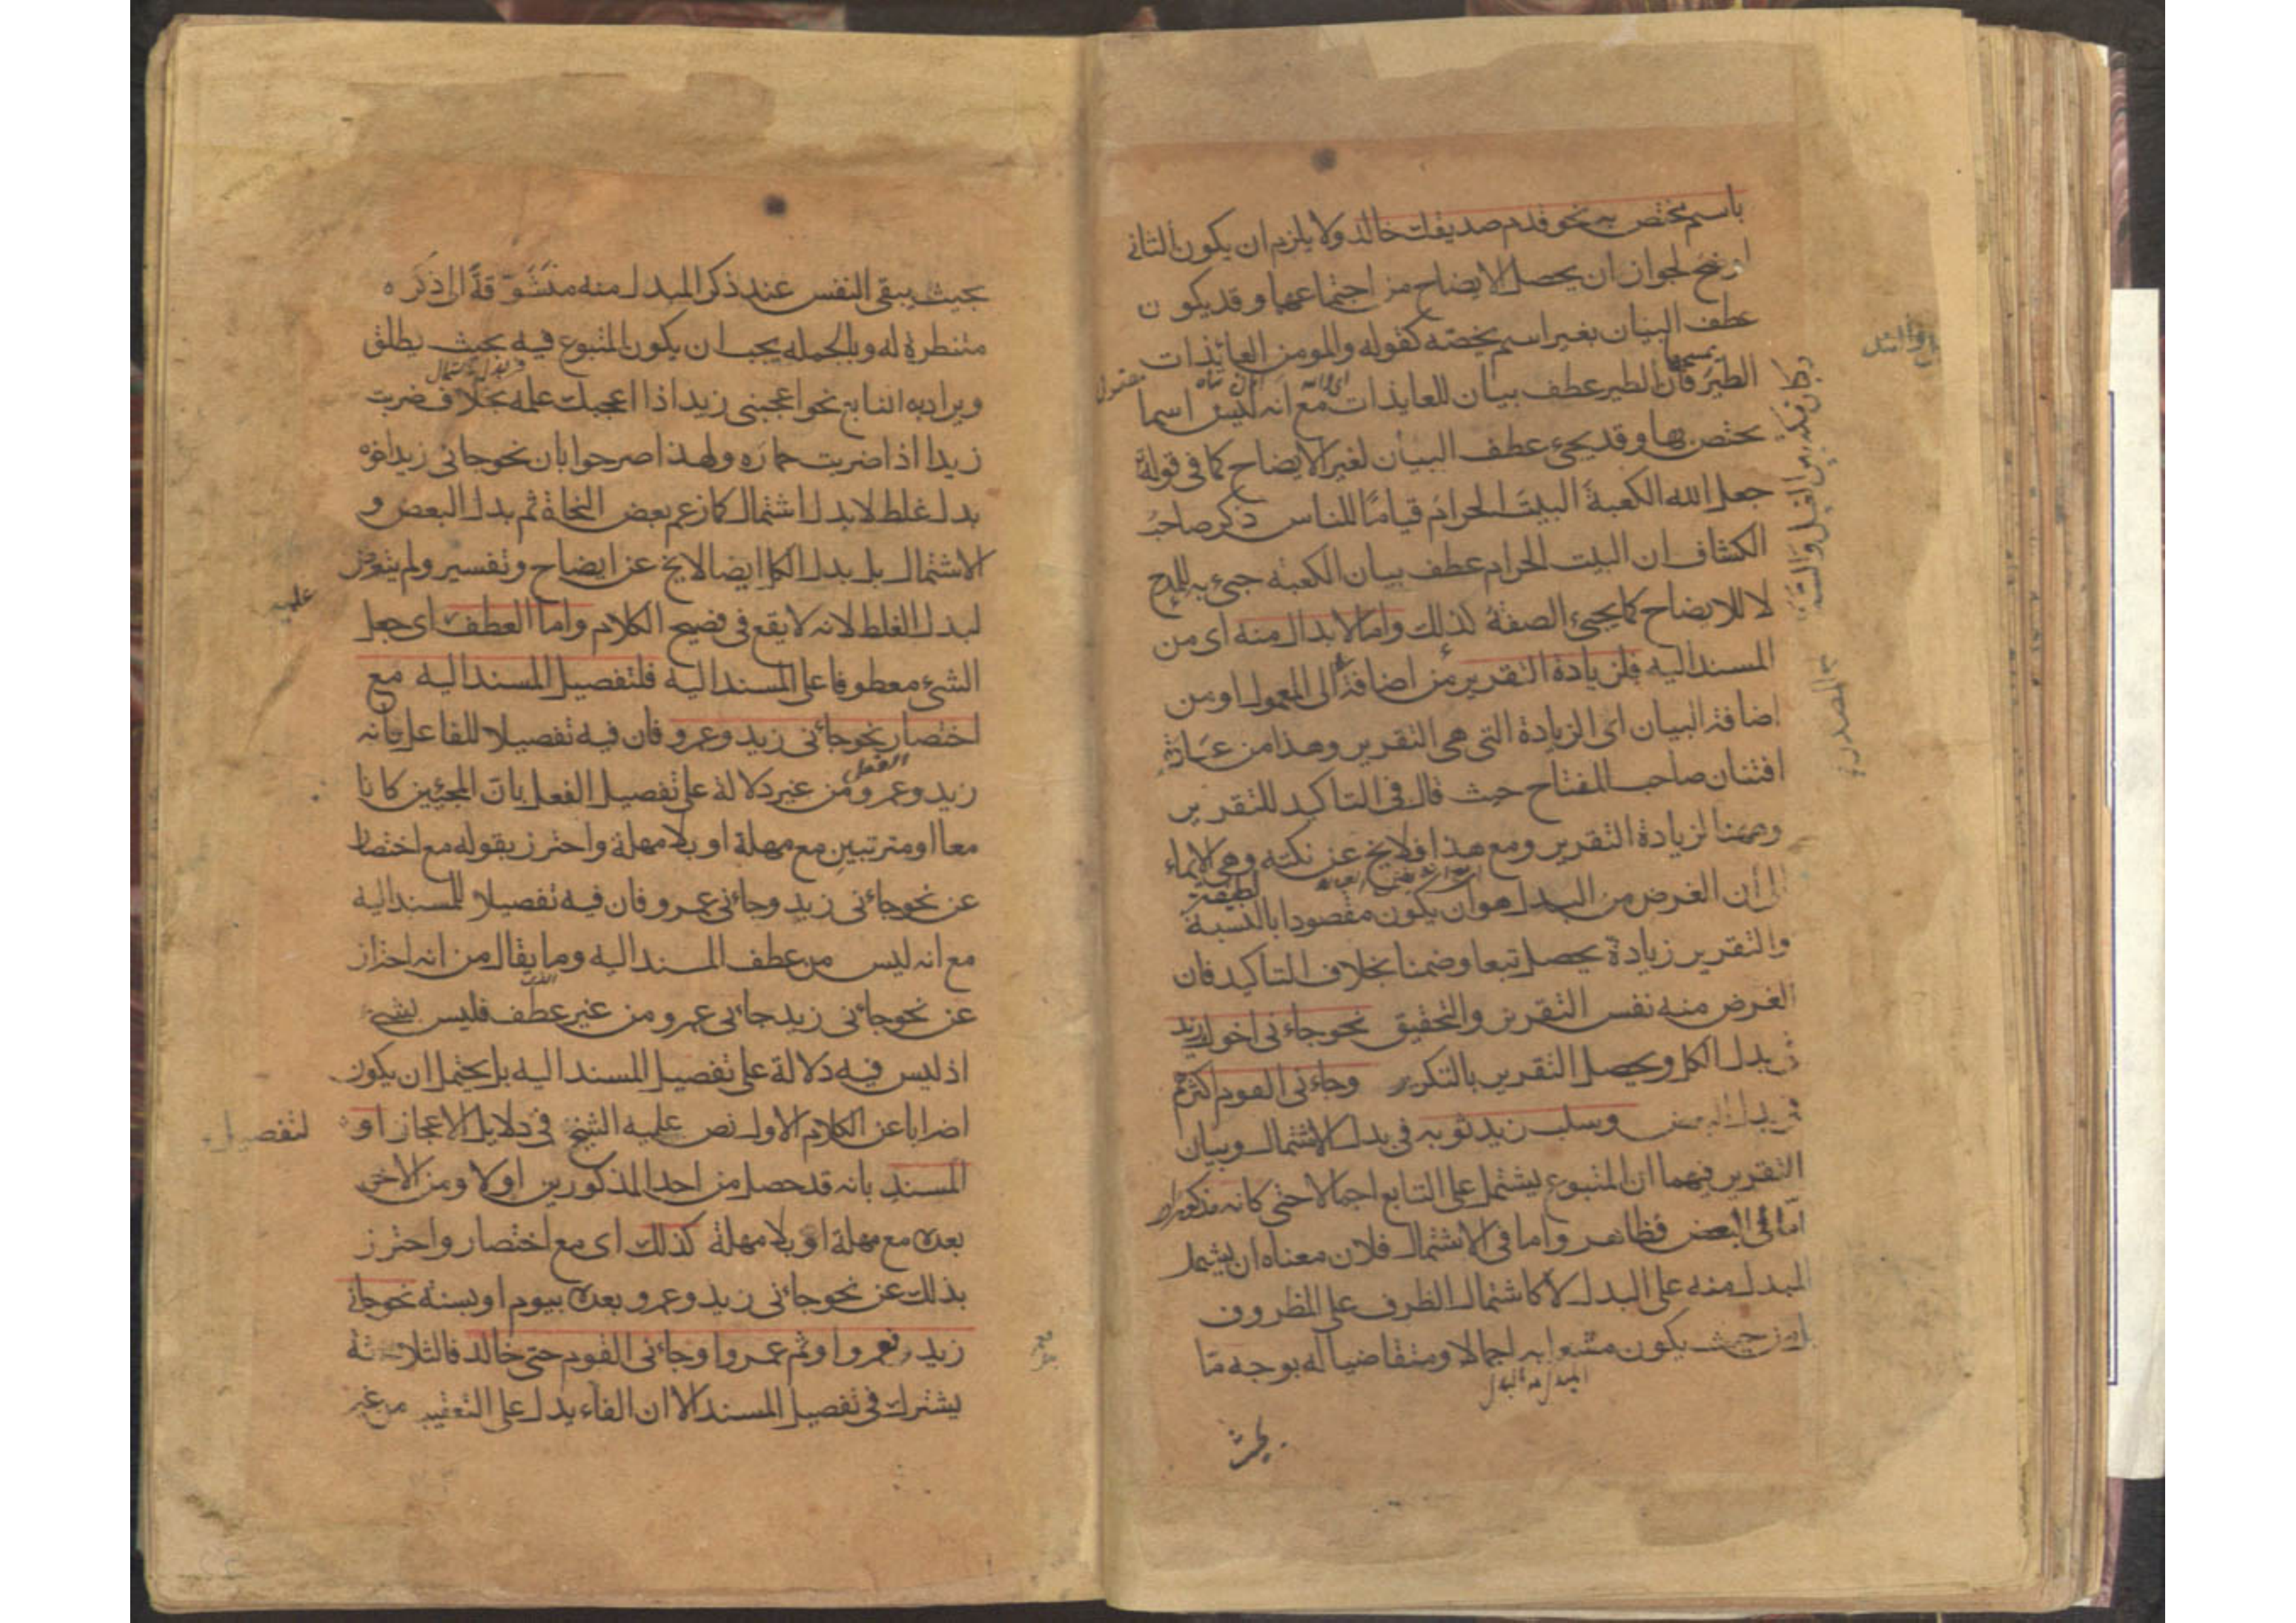 باسم مختص به نحو قدم صديقك خالد ولا يلزم ان يكون الثاني
اوضح لجواز ان يحصل الايضاح من اجتماعهما وقد يكون
عطف البيان بغير اسم يختصه كقوله والمومن العايذات
الطير فان الطير عطف بيان للعايذات مع انه ليس اسما
يختص بها وقد يجئ عطف البيان لغير الايضاح كما في قوله
جعل الله الكعبة البيت الحرام قياما للناس ذكر صاحب
الكشاف ان البيت الحرام عطف بيان الكعبة جئ به للمدح
لا للايضاح كما يجئ الصفة كذلك واما الابدال منه اى من
المسند اليه فلزيادة التقرير من اضافة الى المعمول او من
اضافة البيان اى الزيادة التى هى التقرير وهذا من عبارة
افتنان صاحب المفتاح حيث قال فى التاكيد للتقرير
وههنا لزيادة التقرير ومع هذا فلا يخ عن نكتة وهى الايماء
الى ان الغرض من البدل هو ان يكون مقصودا بالنسبة
والتقرير زيادة يحصل تبعا وضمنا بخلاف التاكيد فان
الغرض منه نفس التقرير والتحقيق نحو جاءنى اخوك زيد
فى بدل الكل ويحصل التقرير بالتكرير وجاءنى القوم اكثرهم
فى بدل البعض وسلب زيد ثوبه فى بدل الاشتمال وبيان
التقرير فيهما ان المتبوع يشتمل على التابع اجمالا حتى كانه مذكور
اما فى البعض فظاهر واما فى الاشتمال فلان معناه ان يشتمل
المبدل منه على البدل لا كاشتمال الظرف على المظروف
بل من حيث يكون مشعرا به اجمالا ومتقاضيا له بوجه ما
بحيث
بحيث يبقى النفس عند ذكر المبدل منه متشوقة الى ذكره
منتظرة له وبالجمله يجب ان يكون المتبوع فيه بحيث يطلق
ويراد به التابع نحو اعجبنى زيد اذا اعجبك علمه بخلاف ضربت
زيدا اذا ضربت حماره ولهذا صرحوا بان نحو جانى زيد اخوه
بدل غلط لا بدل اشتمال كما زعم بعض النحاة ثم بدل البعض و
الاشتمال بل بدل الكل ايضا لا يخ عن ايضاح وتفسير ولم يتعرض
لبدل الغلط لانه لا يقع فى فصيح الكلام واما العطف اى جعل
الشئ معطوفا على المسند اليه فلتفصيل المسند اليه مع
اختصار نحو جائنى زيد وعمرو فان فيه تفصيلا للفاعل بانه
زيد وعمرو من غير دلالة على تفصيل الفعل بان المجيئين كانا
معا او مترتبين مع مهلة او بلا مهلة واحترز بقوله مع اختصار
عن نحو جائنى زيد وجائنى عمرو فان فيه تفصيلا للمسند اليه
مع انه ليس من عطف المسند اليه وما يقال من انه احتراز
عن نحو جائنى زيد جائنى عمرو من غير عطف فليس بشئ
اذ ليس فيه دلالة على تفصيل المسند اليه بل يحتمل ان يكون
اضرابا عن الكلام الاول نص عليه الشيخ فى دلايل الاعجاز او
لتفصيل
المسند بانه قد حصل من احد المذكورين اولا ومن الاخر
بعده مع مهلة او بلا مهلة كذلك اى مع اختصار واحترز
بذلك عن نحو جائنى زيد وعمرو بعده بيوم او بسنة نحو جانى
زيد فعمرو او ثم عمرو او جائنى القوم حتى خالد فالثلاثة
يشترك فى تفصيل المسند الا ان الفاء يدل على التعقيب من غير